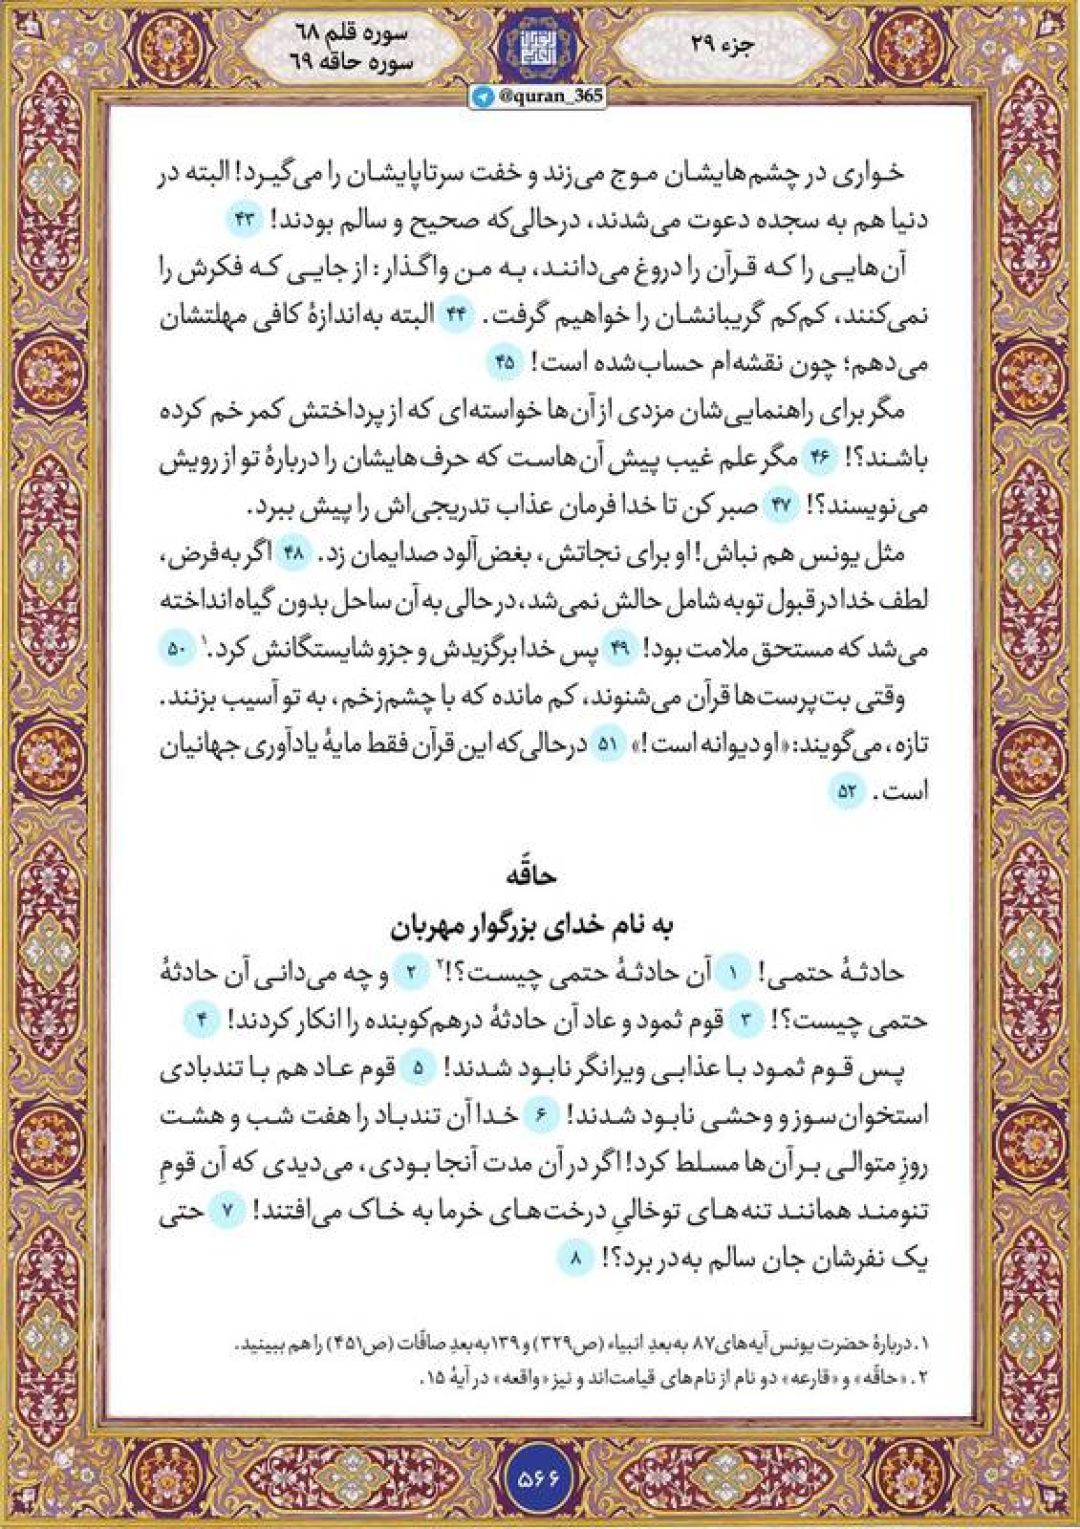 جزء ۲۹
سوره قلم ۶۸
سوره حاقه ۶۹
@quran_365
خواری در چشم‌هایشان موج می‌زند و خفت سرتاپایشان را می‌گیرد! البته در
دنیا هم به سجده دعوت می‌شدند، درحالی‌که صحیح و سالم بودند! ۴۳
آن‌هایی را که قرآن را دروغ می‌دانند، به من واگذار: از جایی که فکرش را
نمی‌کنند، کم‌کم گریبانشان را خواهیم گرفت. ۴۴ البته به‌اندازهٔ کافی مهلتشان
می‌دهم؛ چون نقشه‌ام حساب‌شده است! ۴۵
مگر برای راهنمایی‌شان مزدی از آن‌ها خواسته‌ای که از پرداختش کمر خم کرده
باشند؟! ۴۶ مگر علم غیب پیش آن‌هاست که حرف‌هایشان را دربارهٔ تو از رویش
می‌نویسند؟! ۴۷ صبر کن تا خدا فرمان عذاب تدریجی‌اش را پیش ببرد.
مثل یونس هم نباش! او برای نجاتش، بغض‌آلود صدایمان زد. ۴۸ اگر به‌فرض،
لطف خدا در قبول توبه شامل حالش نمی‌شد، در حالی به آن ساحل بدون گیاه انداخته
می‌شد که مستحق ملامت بود! ۴۹ پس خدا برگزیدش و جزو شایستگانش کرد.۱ ۵۰
وقتی بت‌پرست‌ها قرآن می‌شنوند، کم مانده که با چشم‌زخم، به تو آسیب بزنند.
تازه، می‌گویند: «او دیوانه است!» ۵۱ درحالی‌که این قرآن فقط مایهٔ یادآوری جهانیان
است. ۵۲
حاقّه
به نام خدای بزرگوار مهربان
حادثهٔ حتمی! ۱ آن حادثهٔ حتمی چیست؟!۲ ۲ و چه می‌دانی آن حادثهٔ
حتمی چیست؟! ۳ قوم ثمود و عاد آن حادثهٔ درهم‌کوبنده را انکار کردند! ۴
پس قوم ثمود با عذابی ویرانگر نابود شدند! ۵ قوم عاد هم با تندبادی
استخوان‌سوز و وحشی نابود شدند! ۶ خدا آن تندباد را هفت شب و هشت
روزِ متوالی بر آن‌ها مسلط کرد! اگر در آن مدت آنجا بودی، می‌دیدی که آن قومِ
تنومند همانند تنه‌های توخالیِ درخت‌های خرما به خاک می‌افتند! ۷ حتی
یک نفرشان جان سالم به‌در برد؟! ۸
۱. دربارهٔ حضرت یونس آیه‌های ۸۷ به‌بعدِ انبیاء (ص۳۲۹) و ۱۳۹ به‌بعدِ صافّات (ص۴۵۱) را هم ببینید.
۲. «حاقّه» و «قارعه» دو نام از نام‌های قیامت‌اند و نیز «واقعه» در آیهٔ ۱۵.
۵۶۶